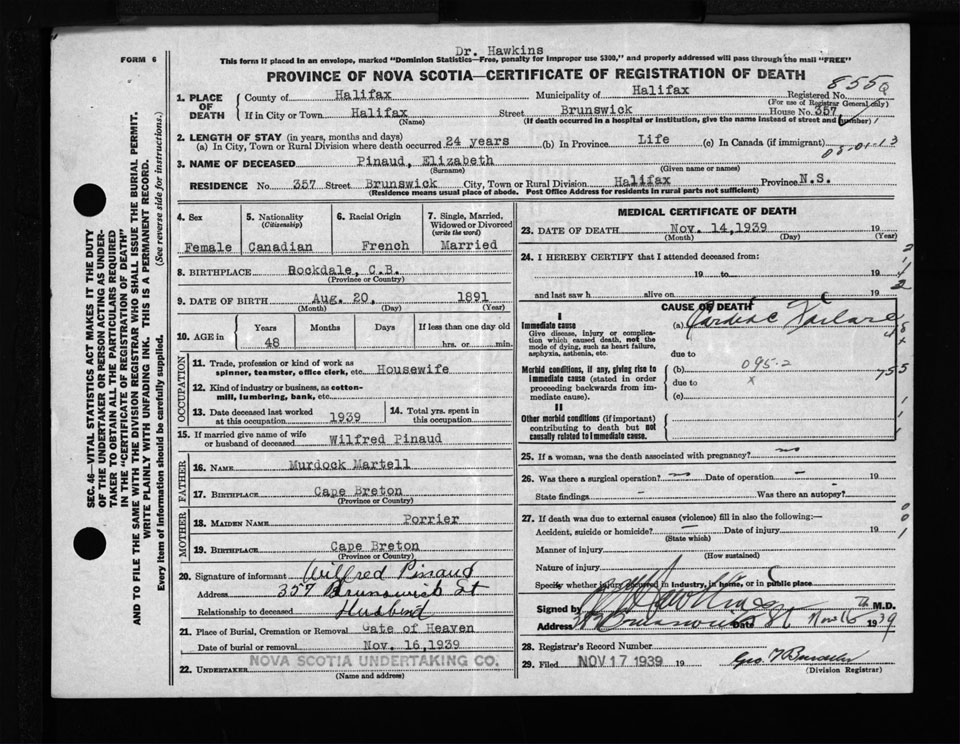 FORM 6
Dr. Hawkins
This form if placed in an envelope, marked "Dominion Statistics—Free, penalty for improper use $300," and properly addressed will pass through the mail "FREE"
PROVINCE OF NOVA SCOTIA—CERTIFICATE OF REGISTRATION OF DEATH
1. PLACE OF DEATH
County of Halifax Municipality of Halifax Registered No. 855
(For use of Registrar General only)
If in City or Town Halifax Street Brunswick House No. 357
(Name) (If death occurred in a hospital or institution, give the name instead of street and number)
2. LENGTH OF STAY (in years, months and days)
(a) In City, Town or Rural Division where death occurred 24 years (b) In Province Life (c) In Canada (if immigrant)
3. NAME OF DECEASED Pinaud, Elizabeth
(Surname) (Given name or names)
RESIDENCE No. 357 Street Brunswick City, Town or Rural Division Halifax Province N.S.
(Residence means usual place of abode. Post Office Address for residents in rural parts not sufficient)
4. Sex
Female
5. Nationality
(Citizenship)
Canadian
6. Racial Origin
French
7. Single, Married, Widowed or Divorced
(write the word)
Married
8. BIRTHPLACE Rockdale, C.B.
(Province or Country)
9. DATE OF BIRTH Aug. 20, 1891
(Month) (Day) (Year)
10. AGE in
Years Months Days If less than one day old
48 hrs. or min.
OCCUPATION
11. Trade, profession or kind of work as spinner, teamster, office clerk, etc. Housewife
12. Kind of industry or business, as cotton-mill, lumbering, bank, etc.
13. Date deceased last worked at this occupation 1939
14. Total yrs. spent in this occupation
15. If married give name of wife or husband of deceased Wilfred Pinaud
FATHER
16. NAME Murdock Martell
17. BIRTHPLACE Cape Breton
(Province or Country)
MOTHER
18. MAIDEN NAME Porrier
19. BIRTHPLACE Cape Breton
(Province or Country)
20. Signature of informant Wilfred Pinaud
Address 357 Brunswick St
Relationship to deceased Husbend
21. Place of Burial, Cremation or Removal Gate of Heaven
Date of burial or removal Nov. 16, 1939
22. UNDERTAKER NOVA SCOTIA UNDERTAKING CO.
(Name and address)
MEDICAL CERTIFICATE OF DEATH
23. DATE OF DEATH Nov. 14, 1939 19
(Month) (Day) (Year)
24. I HEREBY CERTIFY that I attended deceased from:
19 to 19
and last saw h alive on 19
CAUSE OF DEATH
I
Immediate cause
Give disease, injury or complication which caused death, not the mode of dying, such as heart failure, asphyxia, asthenia, etc.
(a) Cardiac Failure
due to
Morbid conditions, if any, giving rise to immediate cause (stated in order proceeding backwards from immediate cause).
(b) 095-2
due to x
(c)
II
Other morbid conditions (if important) contributing to death but not causally related to immediate cause.
25. If a woman, was the death associated with pregnancy? no
26. Was there a surgical operation? no Date of operation 19
State findings Was there an autopsy?
27. If death was due to external causes (violence) fill in also the following:—
Accident, suicide or homicide? Date of injury 19
(State which)
Manner of injury
(How sustained)
Nature of injury
Specify whether injury occurred in industry, in home, or in public place
Signed by M.D.
Address Brunswick St Date Nov 16 Th 1939
28. Registrar's Record Number
29. Filed NOV 17 1939 19
(Division Registrar)
SEC. 46—VITAL STATISTICS ACT MAKES IT THE DUTY
OF THE UNDERTAKER OR PERSON ACTING AS UNDER-
TAKER TO OBTAIN ALL THE PARTICULARS REQUIRED
IN THE "CERTIFICATE OF REGISTRATION OF DEATH"
AND TO FILE THE SAME WITH THE DIVISION REGISTRAR WHO SHALL ISSUE THE BURIAL PERMIT.
WRITE PLAINLY WITH UNFADING INK. THIS IS A PERMANENT RECORD.
Every item of information should be carefully supplied. (See reverse side for instructions.)